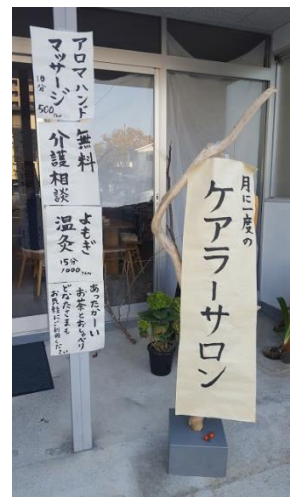 アロマハンド
マッサージ
10分
500yen
無料
介護相談
よもぎ
温灸
15分
1000yen
あったかーい
お茶とおしゃべり
どなたさまも
お気軽にご利用ください
月に一度の
ケアラーサロン